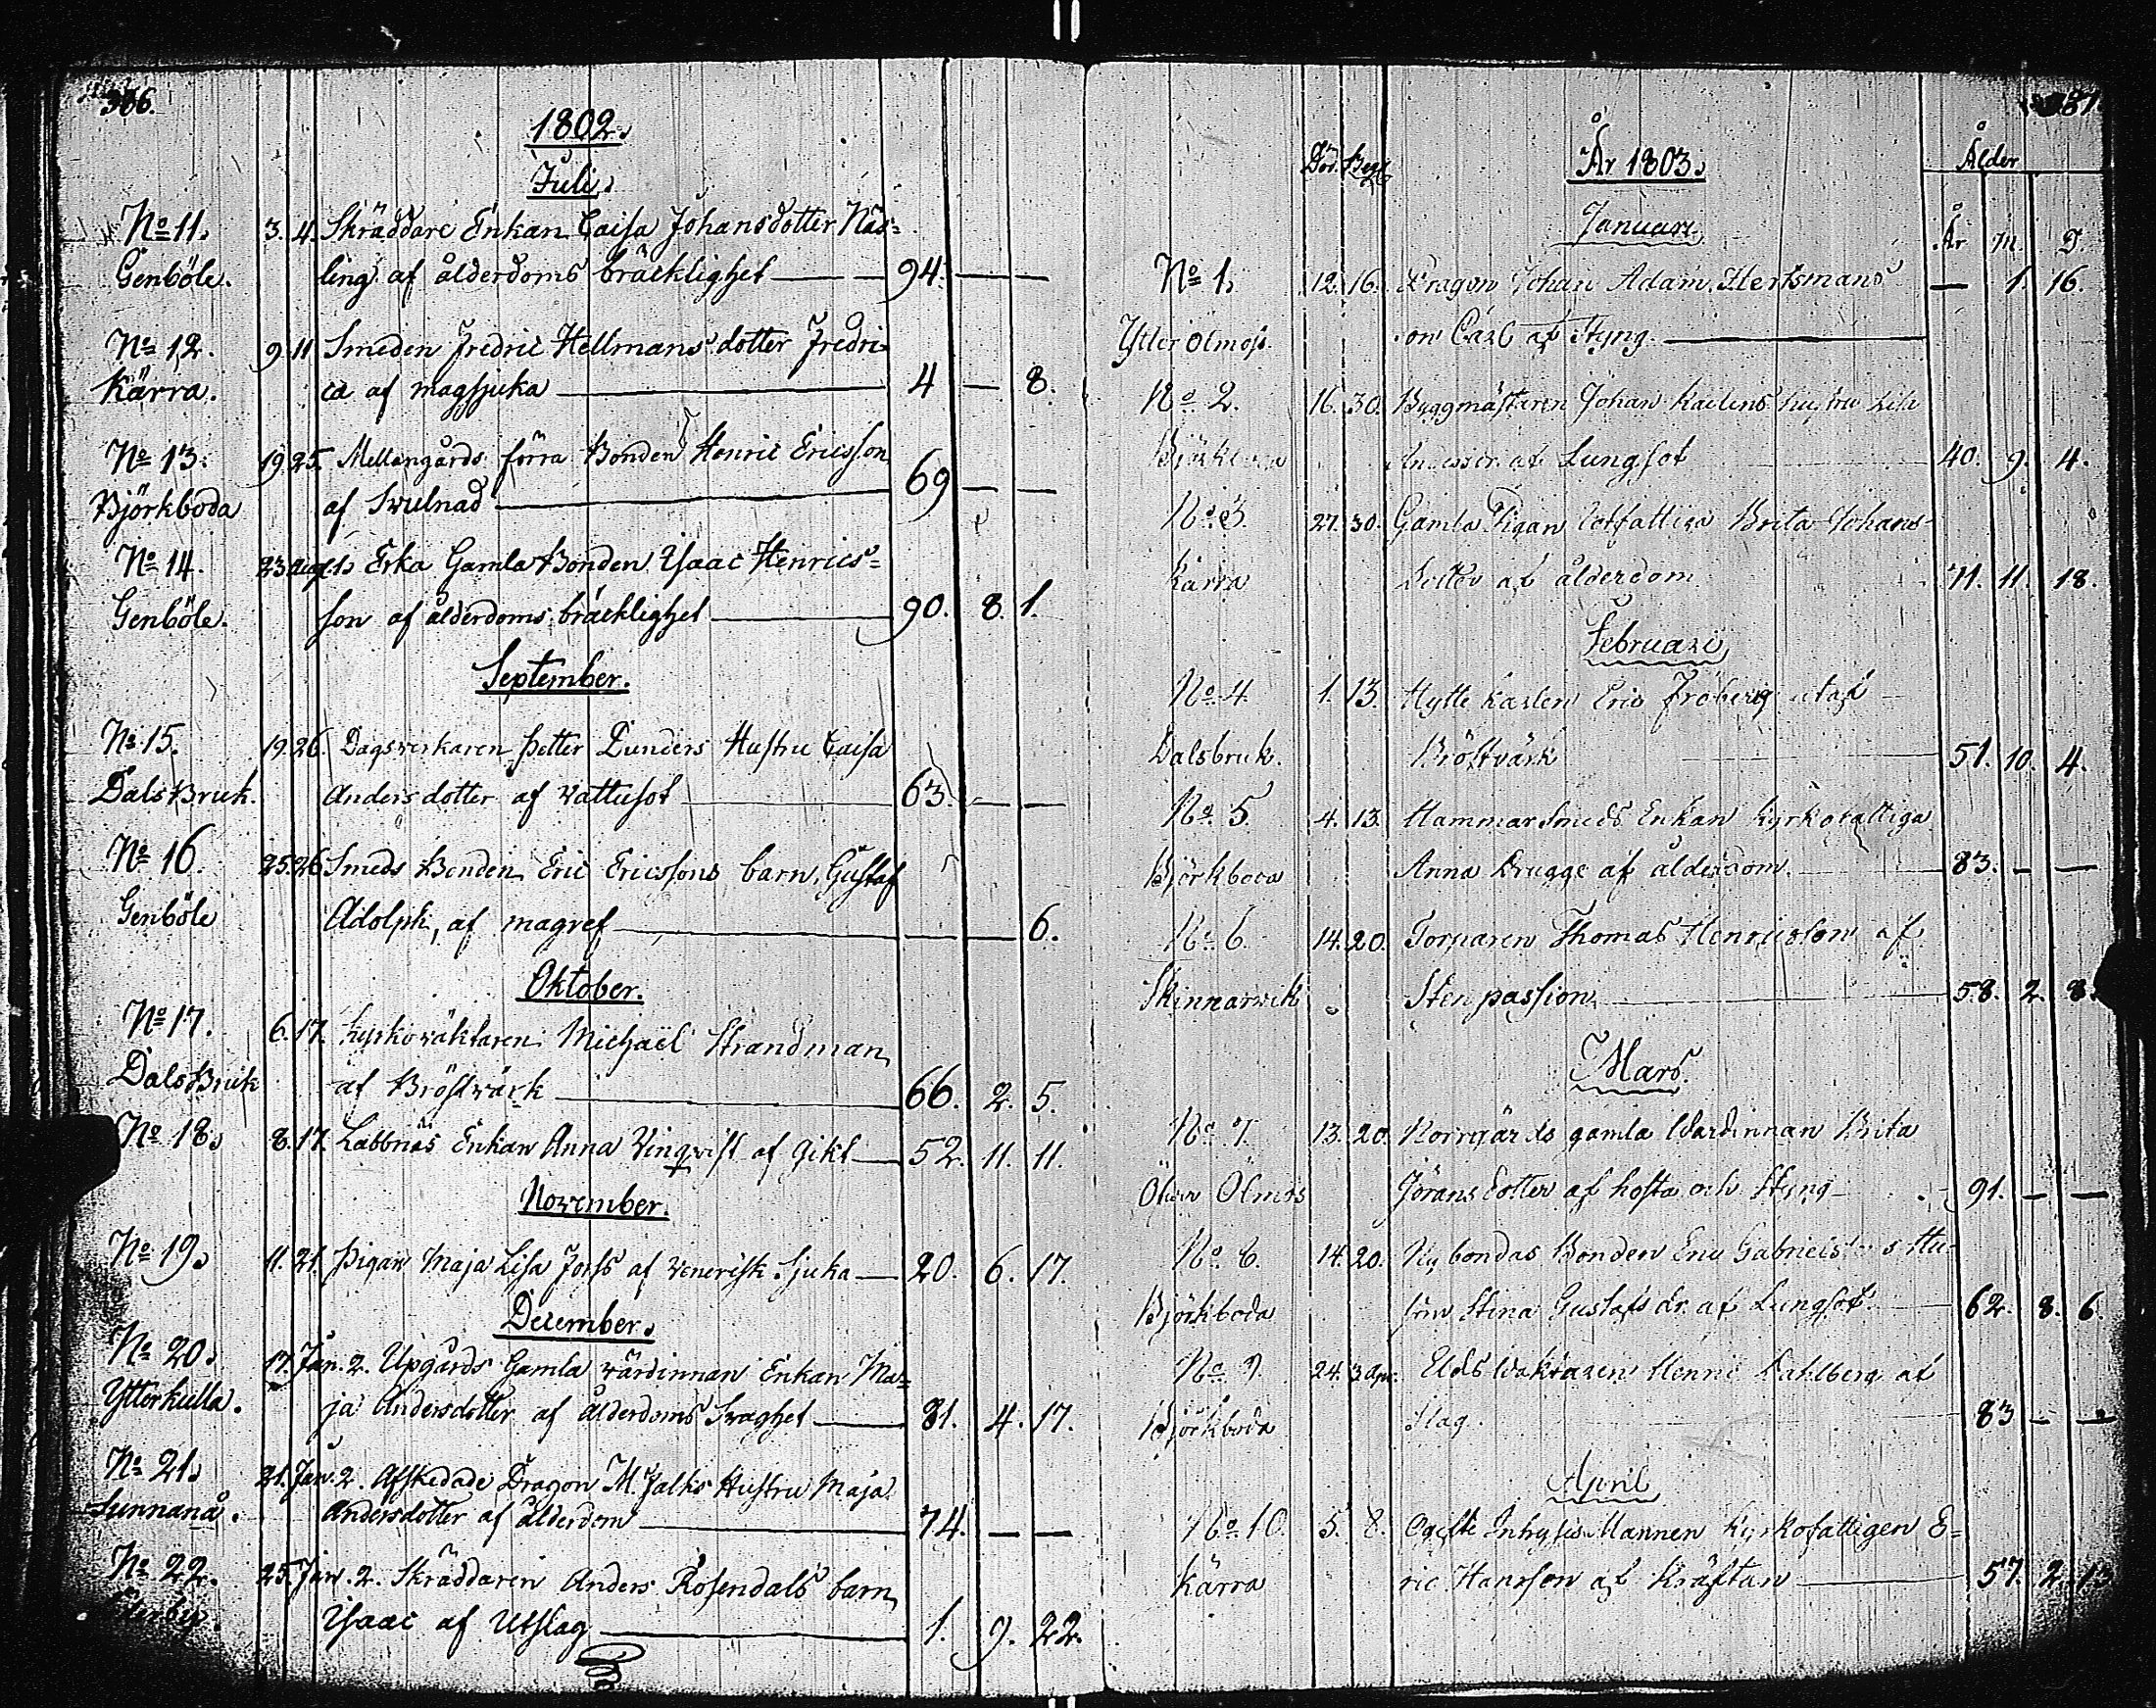 386.
1802.
Juli.
No 11. 3. 4. Skräddare Enkan Caisa Johansdotter Näs=
Genböle. ling af ålderdoms bräcklighet — 94. — —
No 12. 9 11 Smeden Fredric Hellmans dotter Fredri=
Kärra. ca af magsjuka — 4 — 8.
No 13. 19 25. Mellangårds förra Bonden Henric Ericsson
Björkboda af Svulnad — 69 — —
No 14. 23 Aug 1. Erka Gamla Bonden Isaac Henrics=
Genböle. son af ålderdoms bräcklighet — 90. 8. 1.
September.
No 15. 19. 26. Dagsverkaren Petter Dunders Hustru Caisa
Dals Bruk. Anders dotter af vattusot — 63. — —
No 16. 25. 26. Smeds Bonden Eric Ericssons barn Gustaf
Genböle Adolph, af magref — — — 6.
Oktober.
No 17. 6. 17. Kyrkoväktaren Michaël Strandman
Dals Bruk af Bröstvärk — 66. 2. 5.
No 18. 8. 17. Labbnäs Enkan Anna Vinqvist af gikt — 52. 11. 11.
November.
No 19. 11. 21. Pigan Maja Lisa Forss af Venerisk Sjuka — 20. 6. 17.
December.
No 20. 17. Jan. 2. Upgårds Gamla värdinnan Enkan Ma=
Ytterkulla. ja Andersdotter af ålderdoms Svaghet — 81. 4. 17.
No 21. 21. Jan. 2. Afskedade Dragon M. Falks Hustru Maja
Sunnanå. Andersdotter af ålderdom — 74. — —
No 22. 25. Jan. 2. Skräddaren Anders Rosendals barn
Isaac af Utslag — 1. 9. 22.
387.
Död. Begr. År 1803. Ålder
Januari År M. D.
No 1. 12. 16. Dragon Johan Adam Hertsmans — 1. 16.
Ytter Ölmos son Carl af Styng. —
No 2. 16. 30. Byggmästaren Johan Kaelens hustru Lisa
Björkboda Andersdr. af Lungsot 40. 9. 4.
No 3. 27. 30. Gamla Pigan Brita Johans-
Kärra dotter af ålderdom 71. 11. 18.
Februari
No 4. 1. 13. Hytte karlen Eric Fröberg utaf
Dalsbruk. Bröstvärk 51. 10. 4.
No 5. 4. 13. Hammar Smeds Enkan Kyrkofattiga
Björkboda Anna Brugge af ålderdom. 83. — —
No 6. 14. 20. Torparen Thomas Henricsson af
Skinnarvik Sten passion — 58. 2. 8.
Mars.
No 7. 13. 20. Norrgårds gamla Wärdinnan Brita
Öfver Ölmos Jörans dotter af hosta och Styng — 91. — —
No 8. 14. 20. Nybondas Bonden Eric Gabrielssons Hu-
Björkboda stru Stina Gustafs dr. af Lungsot. 62. 8. 6.
No 9. 24. 3 Apr. Elds Waktaren Henric Dahlberg af
Björkboda Slag. 83 — —
April
No 10. 5. 8. Ogifte Inhyses Mannen Kyrkofattigen E=
Kärra ric Hansson af Kräftan — 57. 2. 13